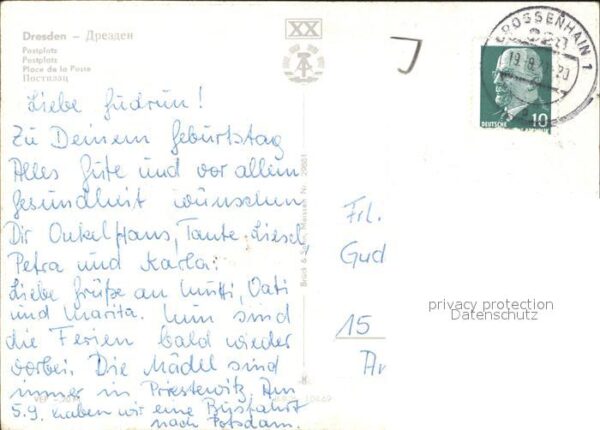 Dresden – Дрезден
Postplatz
Postplatz
Place de la Poste
Постплац
XX
Liebe Gudrun!
Zu Deinem Geburtstag
Alles Gute und vor allem
Gesundheit wünschen
Dir Onkel Hans, Tante Liesel,
Petra und Karla.
Liebe Grüße an Mutti, Vati
und Marita. Nun sind
die Ferien bald wieder
vorbei. Die Mädel sind
immer in Priestewitz. Am
5.9. haben wir eine Busfahrt
nach Potsdam.
Brück & Sohn, Meissen Nr. 29851
GROSSENHAIN 1
8223
DEUTSCHE
10
Frl.
Gud
15
Ar
privacy protection
Datenschutz